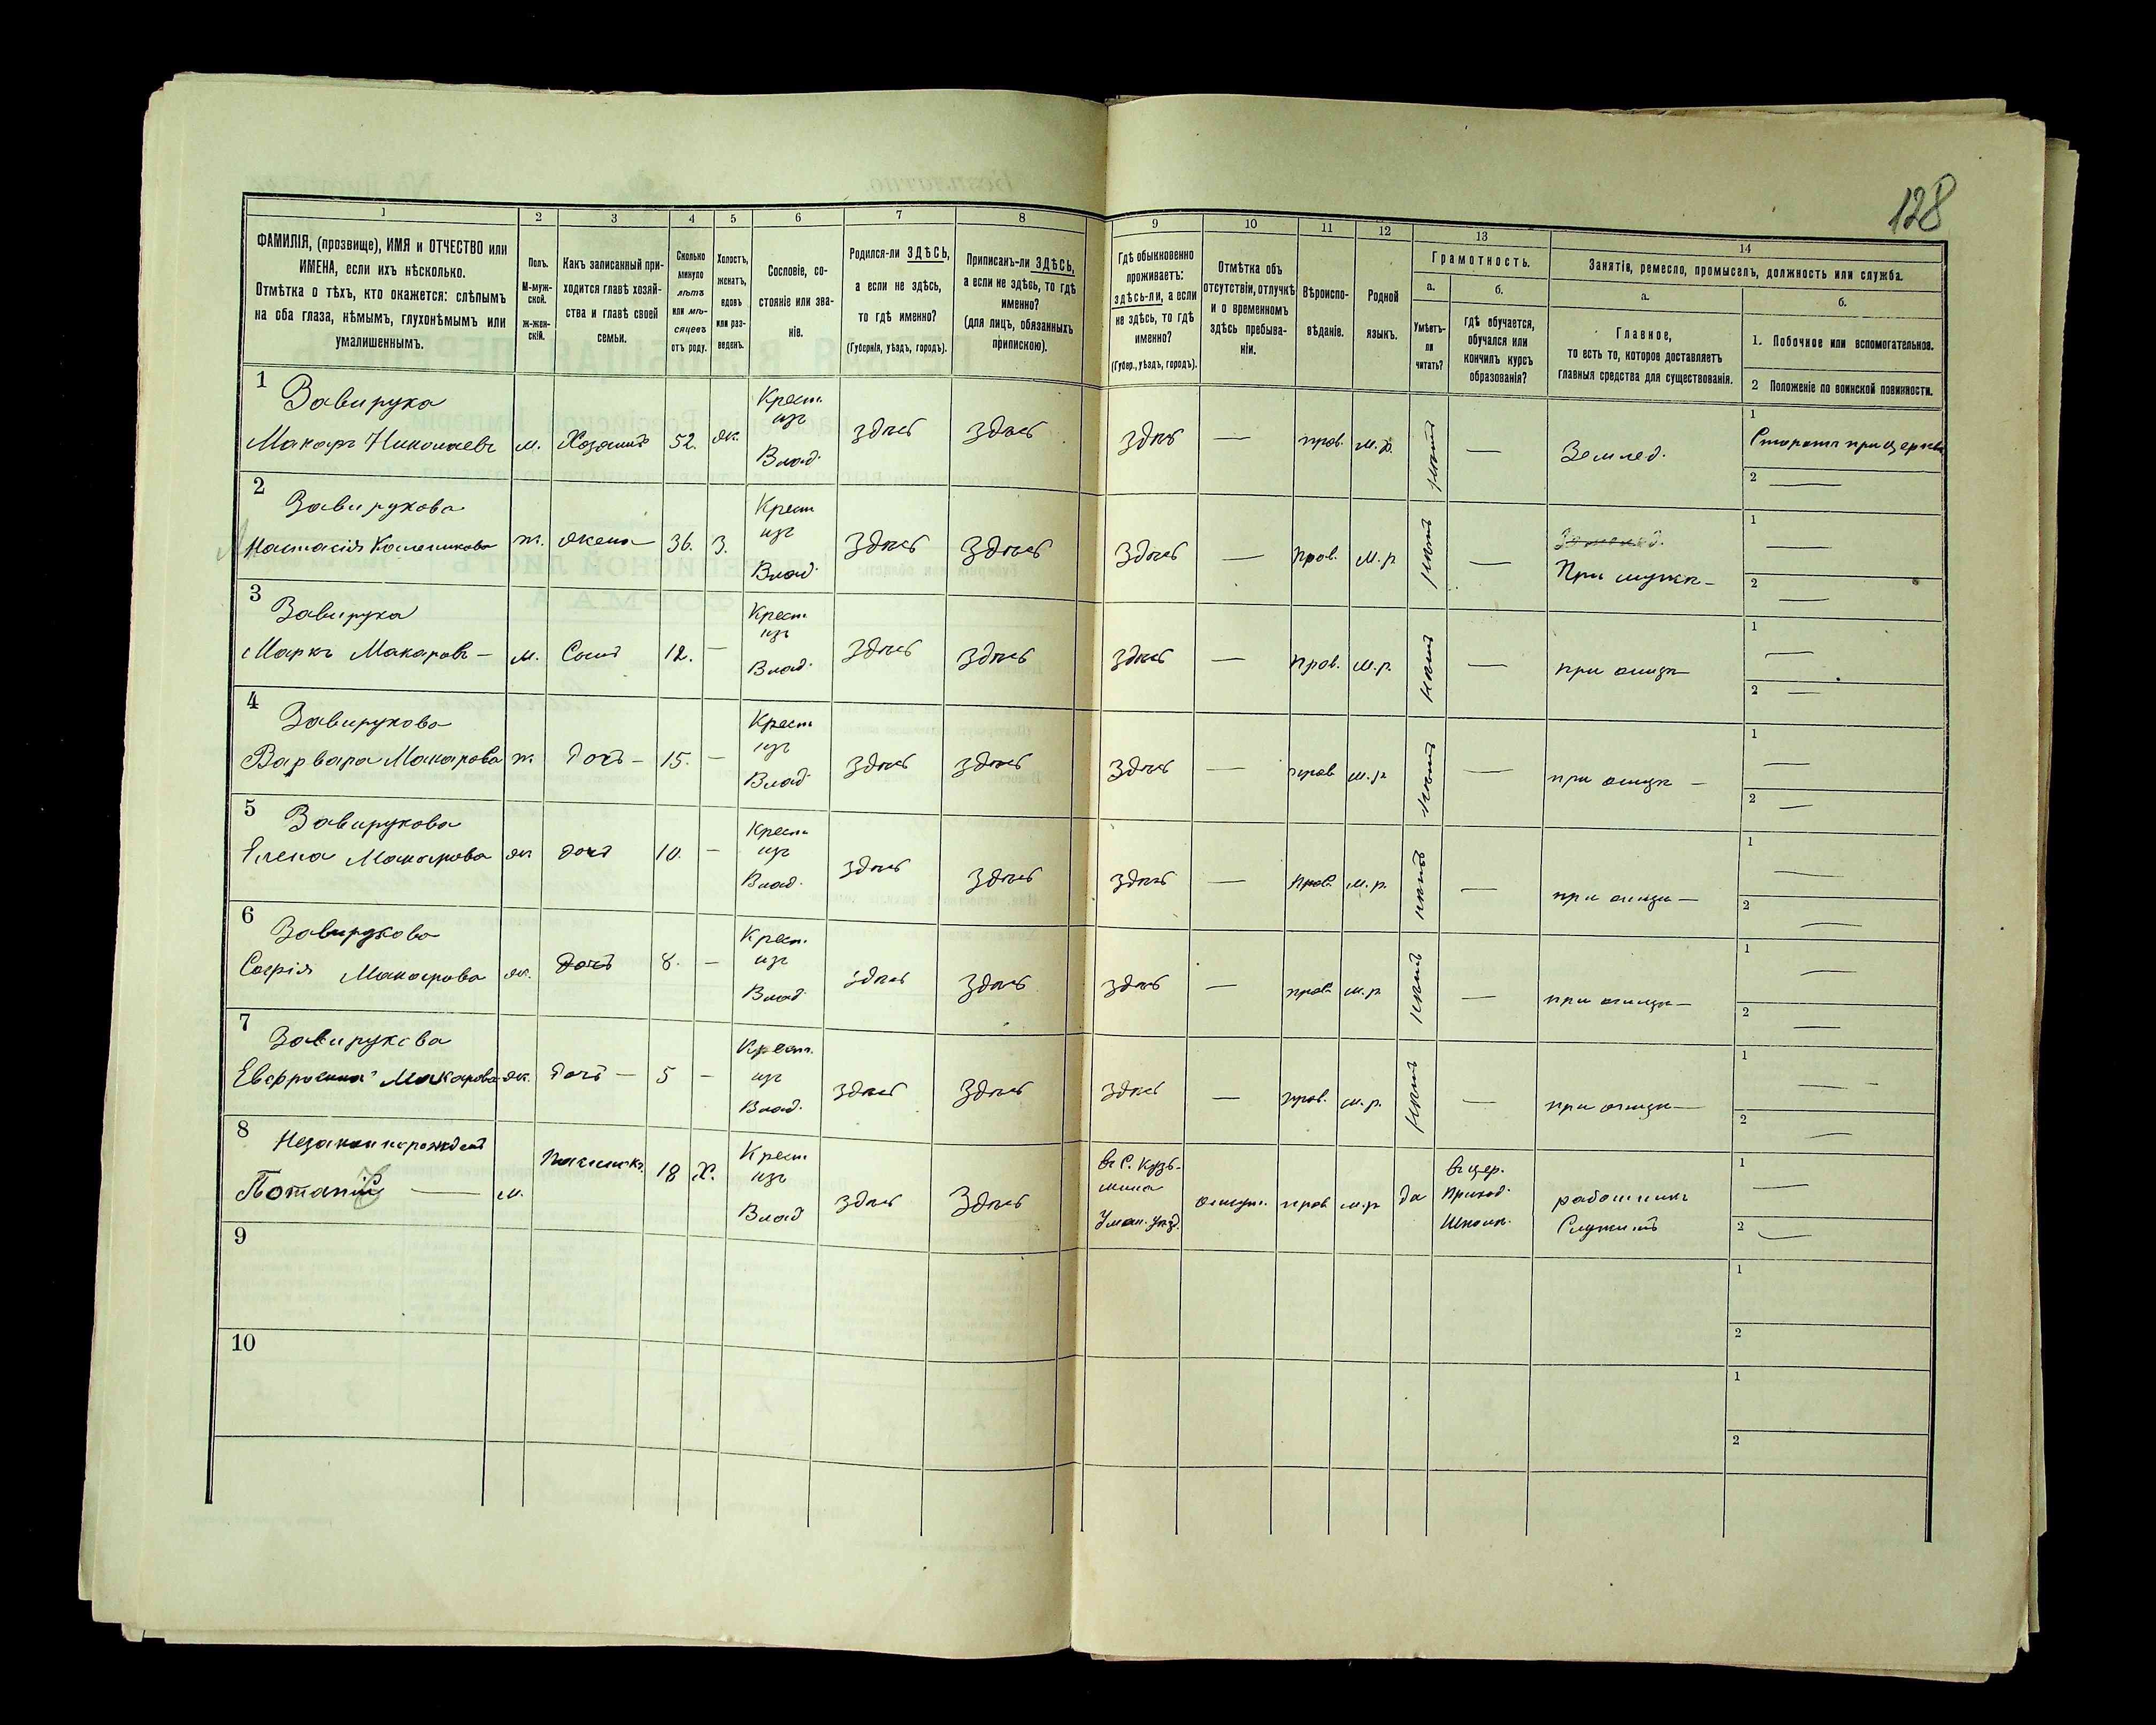 128
1 2 3 4 5 6 7 8 9 10 11 12 13 14
ФАМИЛІЯ, (прозвище), ИМЯ и ОТЧЕСТВО или
ИМЕНА, если ихъ нѣсколько.
Отмѣтка о тѣхъ, кто окажется: слѣпымъ
на оба глаза, нѣмымъ, глухонѣмымъ или
умалишеннымъ.
Полъ.
М-муж-
ской.
ж-жен-
скій.
Какъ записанный при-
ходится главѣ хозяй-
ства и главѣ своей
семьи.
Сколько
минуло
лѣтъ
или мѣ-
сяцевъ
отъ роду.
Холостъ,
женатъ,
вдовъ
или раз-
веденъ.
Сословіе, со-
стояніе или зва-
ніе.
Родился-ли ЗДѢСЬ,
а если не здѣсь,
то гдѣ именно?
(Губернія, уѣздъ, городъ).
Приписанъ-ли ЗДѢСЬ,
а если не здѣсь, то гдѣ
именно?
(для лицъ, обязанныхъ
припискою).
Гдѣ обыкновенно
проживаетъ:
здѣсь-ли, а если
не здѣсь, то гдѣ
именно?
(Губер., уѣздъ, городъ).
Отмѣтка объ
отсутствіи, отлучкѣ
и о временномъ
здѣсь пребыва-
ніи.
Вѣроиспо-
вѣданіе.
Родной
языкъ.
Грамотность.
а. б.
Умѣетъ-
ли
читать?
гдѣ обучается,
обучался или
кончилъ курсъ
образованія?
Занятіе, ремесло, промыселъ, должность или служба.
а. б.
Главное,
то есть то, которое доставляетъ
главныя средства для существованія.
1. Побочное или вспомогательное.
2 Положеніе по воинской повинности.
1 Завируха Крест. 1
изъ
Макаръ Николаевъ м. Хозяинъ 52. ж. Влад. здѣсь здѣсь здѣсь — прав. м.р. нѣтъ — Землед. Сторожъ при церкви
2 —
2 Завирухова Крест 1 —
изъ Землед.
Настасія ж. жена 36. З. Влад. здѣсь здѣсь здѣсь — прав. м.р нѣтъ — При мужѣ —
2 —
3 Завируха Крест 1 —
изъ
Маркъ Макаровъ — м. Сынъ 12. — Влад. здѣсь здѣсь здѣсь — прав. м.р. нѣтъ — при отцѣ —
2 —
4 Завирухова Крест 1 —
изъ
Варвара Макарова ж. дочь — 15. — Влад здѣсь здѣсь здѣсь — прав м.р нѣтъ — при отцѣ —
2 —
5 Завирухова Крест 1 —
изъ
Елена Макарова ж дочь 10. — Влад. здѣсь здѣсь здѣсь — прав. м.р. нѣтъ — при отцѣ —
2 —
6 Завирухова Крест. 1 —
изъ
Софія Макарова ж. дочь 8. — Влад здѣсь здѣсь здѣсь — прав м.р нѣтъ — при отцѣ —
2 —
7 Завирухова Крест. 1 —
изъ
Евфросина Макарова ж. дочь — 5 — Влад. здѣсь здѣсь здѣсь — прав. м.р. нѣтъ — при отцѣ —
2 —
8 Крест въ с. Кузь- въ цер. 1 —
изъ мина приход.
Потапій — м. 18 Х. Влад здѣсь здѣсь Уман. уѣзд. отлуч. прав м.р да школѣ. работникъ
Служитъ 2 —
9 1
2
10 1
2